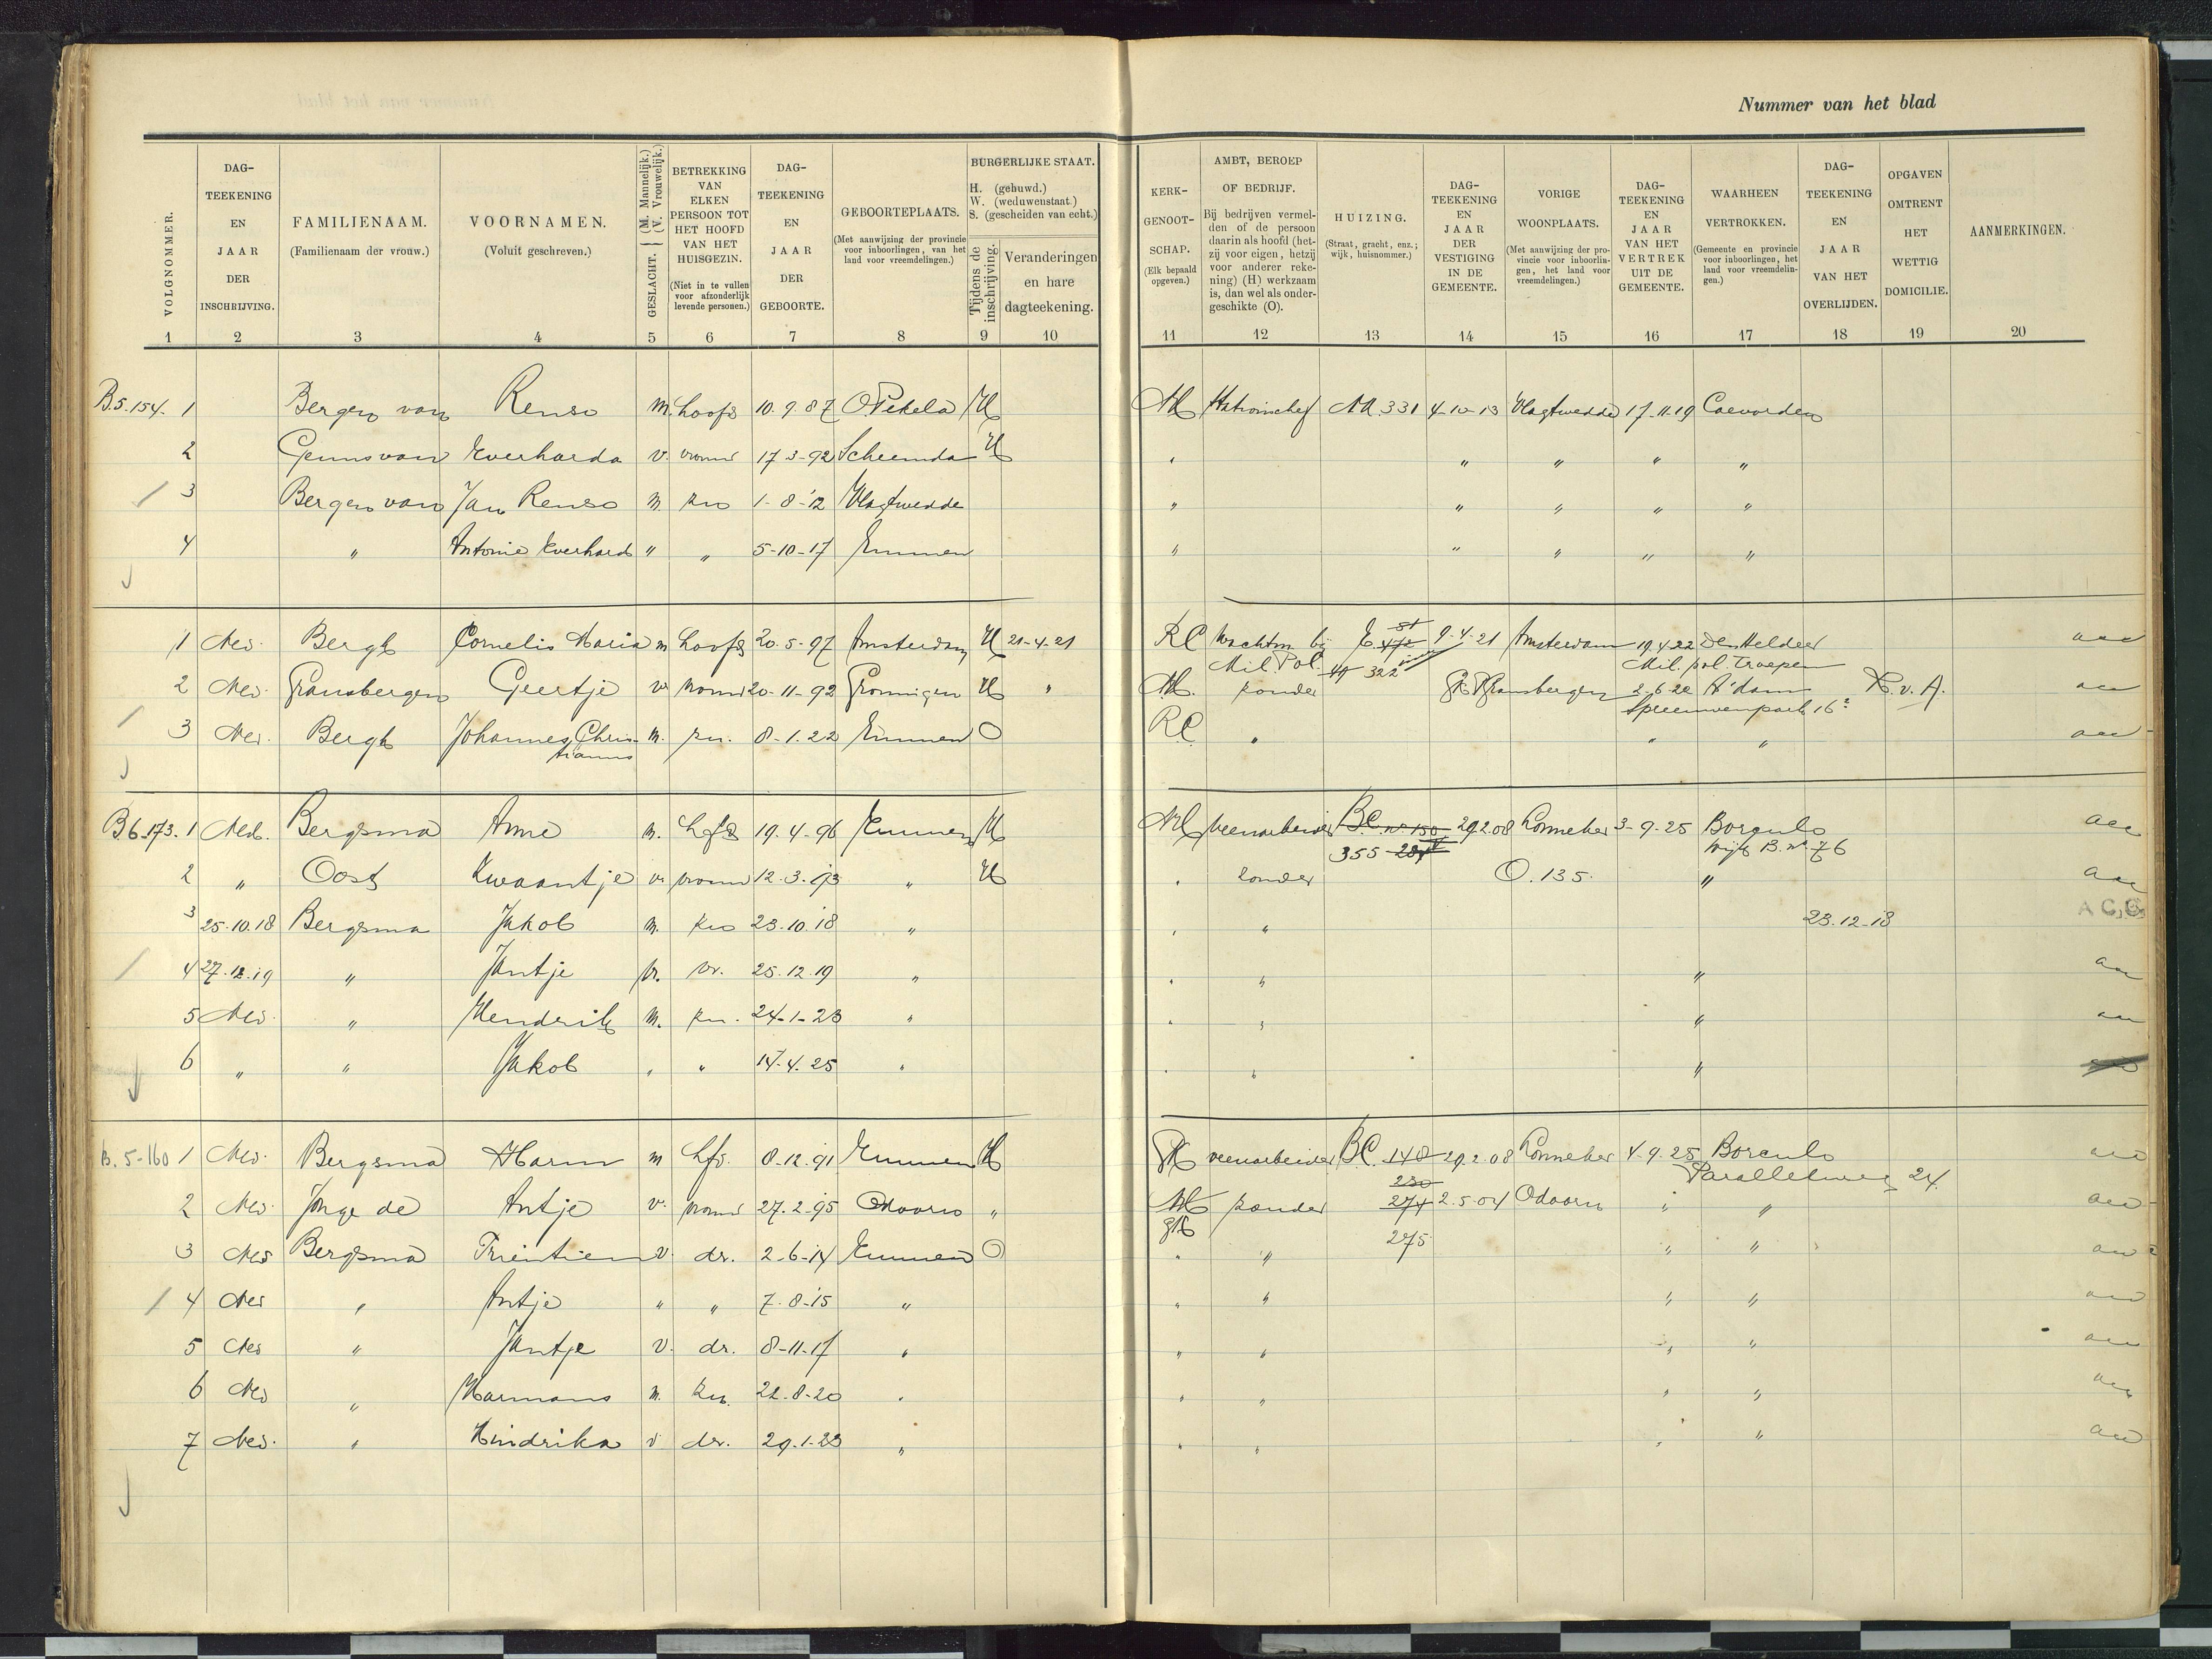 Nummer van het blad
VOLGNOMMER. DAG-TEEKENING EN JAAR DER INSCHRIJVING. FAMILIENAAM. (Familienaam der vrouw.) VOORNAMEN. (Voluit geschreven.) GESLACHT. (M. Mannelijk.) (V. Vrouwelijk.) BETREKKING VAN ELKEN PERSOON TOT HET HOOFD VAN HET HUISGEZIN. (Niet in te vullen voor afzonderlijk levende personen.) DAG-TEEKENING EN JAAR DER GEBOORTE. GEBOORTEPLAATS. (Met aanwijzing der provincie voor inboorlingen, van het land voor vreemdelingen.) BURGERLIJKE STAAT. H. (gehuwd.) W. (weduwenstaat.) S. (gescheiden van echt.) Tijdens de inschrijving. Veranderingen en hare dagteekening.
KERK-GENOOT-SCHAP. (Elk bepaald opgeven.) AMBT, BEROEP OF BEDRIJF. Bij bedrijven vermelden of de persoon daarin als hoofd (hetzij voor eigen, hetzij voor anderer rekening) (H) werkzaam is, dan wel als ondergeschikte (O). HUIZING. (Straat, gracht, enz.; wijk, huisnommer.) DAG-TEEKENING EN JAAR DER VESTIGING IN DE GEMEENTE. VORIGE WOONPLAATS. (Met aanwijzing der provincie voor inboorlingen, het land voor vreemdelingen.) DAG-TEEKENING EN JAAR VAN HET VERTREK UIT DE GEMEENTE. WAARHEEN VERTROKKEN. (Gemeente en provincie voor inboorlingen, het land voor vreemdelingen.) DAG-TEEKENING EN JAAR VAN HET OVERLIJDEN. OPGAVEN OMTRENT HET WETTIG DOMICILIE. AANMERKINGEN.
1 2 3 4 5 6 7 8 9 10 11 12 13 14 15 16 17 18 19 20
B.5.154. 1 Bergen van Renso m. hoofd 10.9.87 O Pekela H NH Stationschef 331 4-10-13 Vlagtwedde 17-11-19 Coevorden
2 Geuns van Everharda v. vrouw 17-3-92 Scheemda H " " " " "
3 Bergen van Jan Renso m. zn 1-8-12 Vlagtwedde " " " " "
4 " Antonie Everhard " " 5-10-17 Emmen " " " " "
1 Ned. Bergh Cornelis Maria m hoofd 20-5-97 Amsterdam H 21-4-21 RC Wachtm bij E. 472 9-4-21 Amsterdam 19.4.22 Den Helder
Mil. Pol. 322 Mil. pol. troepen
2 Ned. Gransbergen Geertje v vrouw 20-11-92 Groningen H " NH. zonder Gransbergen 2-6-22 A'dam B. v. A.
Spreeuwenpark 16²
3 Ned. Bergh Johannes Chris- m. zn. 8-1-22 Emmen O RC " " "
tianus
B6-173. 1 Ned. Bergsma Anne m. hfd 19.4-96 Emmen H NH veenarbeider BC. no 150 29.2.08 Lonneker 3-9-25 Borculo
355 Wijk B. no 76
2 " Oost Kwaantje v vrouw 12.3.93 " H " zonder O.135. "
3 25.10.18 Bergsma Jakob m. zn 23.10.18 " " " 23.12.18
4 27.12.19 " Jantje v. dr. 25.12.19 " " " "
5 Ned. " Hendrik m. zn. 24-1-23 " " " "
6 " " Jakob " " 14.4.25 " " " "
B.5-160 1 Ned. Bergsma Harm m hfd. 8.12.91 Emmen H GK veenarbeider BC. 148 29.2.08 Lonneker 4.9.25 Borculo
230 Parallelweg 24.
2 Ned. Jonge de Antje v. vrouw 27.2.95 Odoorn " NH zonder 274 2.5.04 Odoorn " "
GK 275
3 Ned Bergsma Trientien v. dr. 2-6-14 Emmen O " " " "
4 Ned " Antje " " 7-8-15 " " " " "
5 Ned " Jantje v. dr. 8-11-17 " " " " "
6 Ned " Harmans m. zn. 22-8-20 " " " " "
7 Ned. " Hindrika v dr. 29.1.23 " " " " "